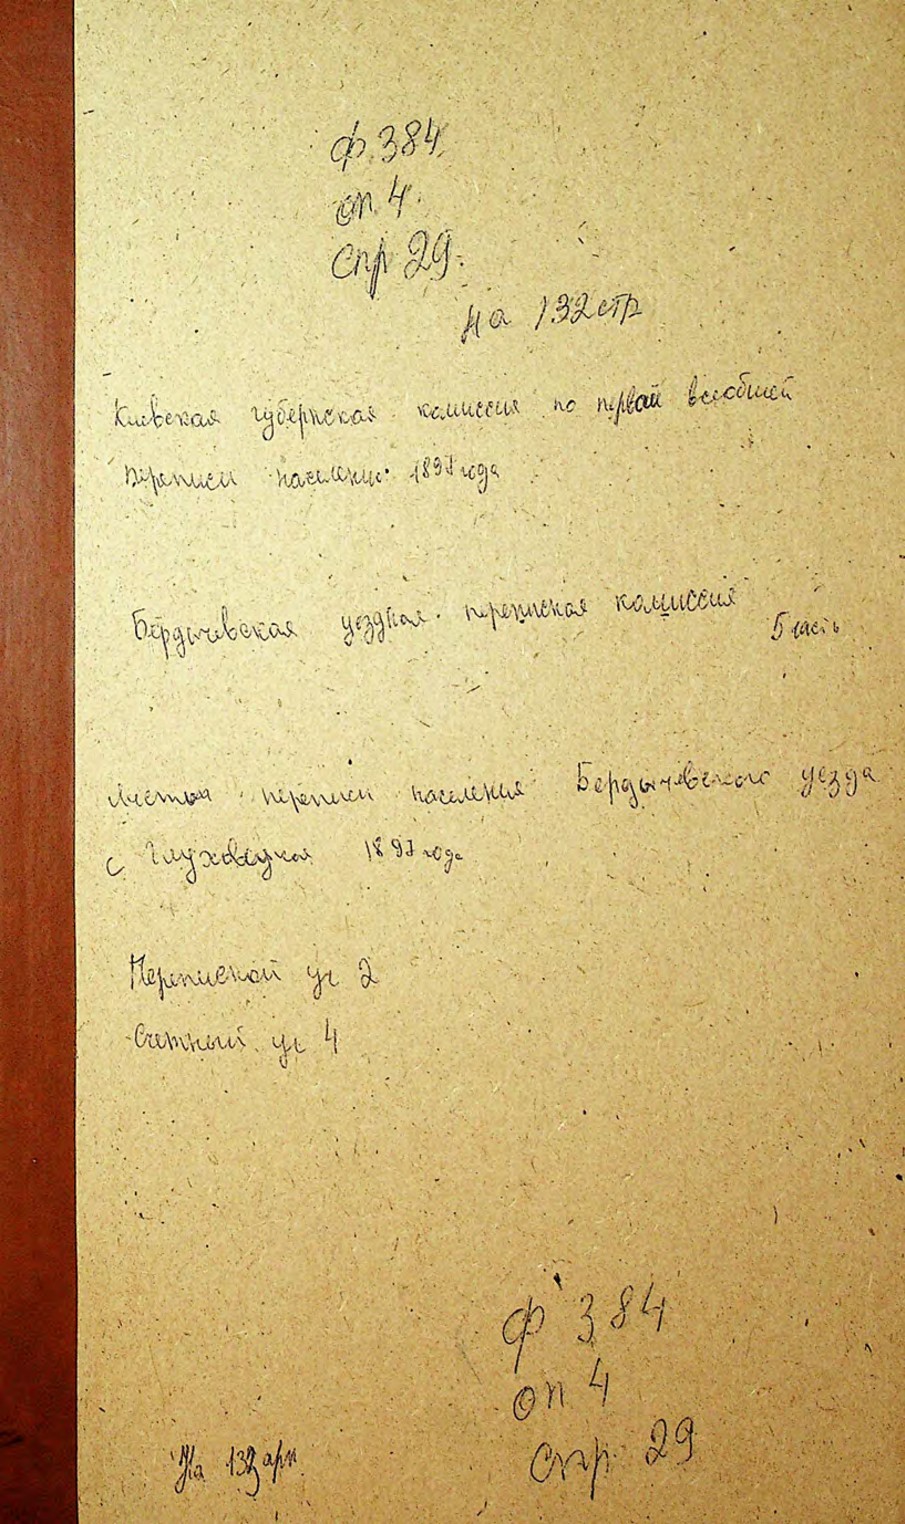 Ф 384
оп 4.
Спр 29.
на 132 стр
Киевская губернская комиссия по первой всеобщей
переписи населения 1897 года
Бердычевская уездная переписная комиссия
5 часть
Листы переписи населения Бердычевского уезда
с Глуховецкая 1897 года
Переписной уч 2
Счетный уч 4
Ф 384
оп 4
Спр 29
На 132 арк